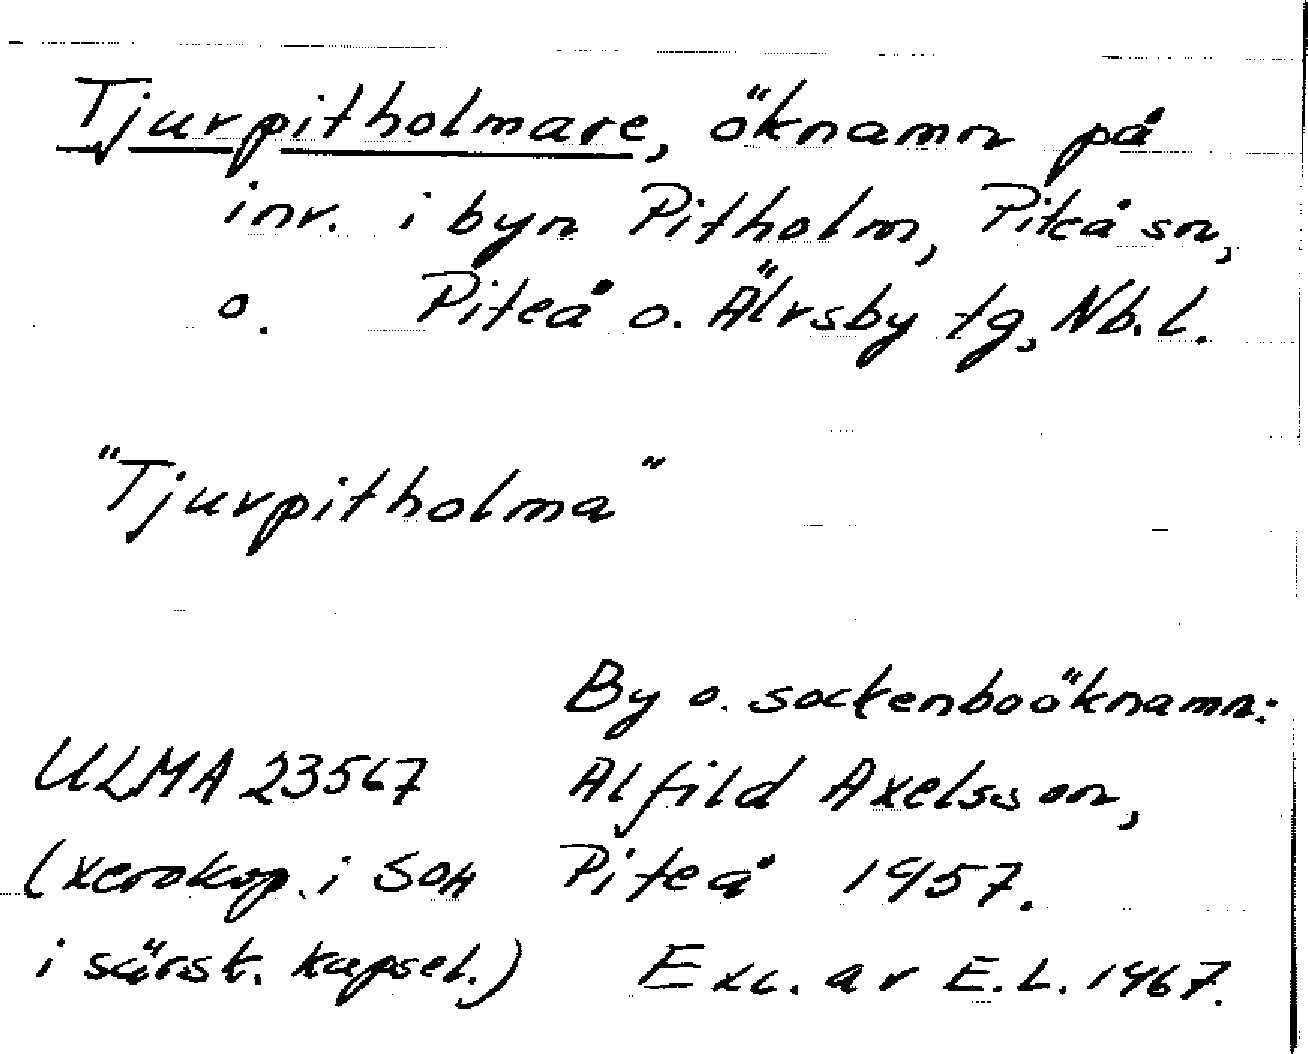 Tjurpitholmare, öknamn på
inv. i byn Pitholm, Piteå sn,
o. Piteå o. Älvsby tg, Nb. l.
"Tjurpitholma"
By o. sockenboöknamn:
ULMA 23567 Alfild Axelsson,
(xerokop. i SOA Piteå 1957.
i särsk. kapsel.) Exc. av E.L. 1967.